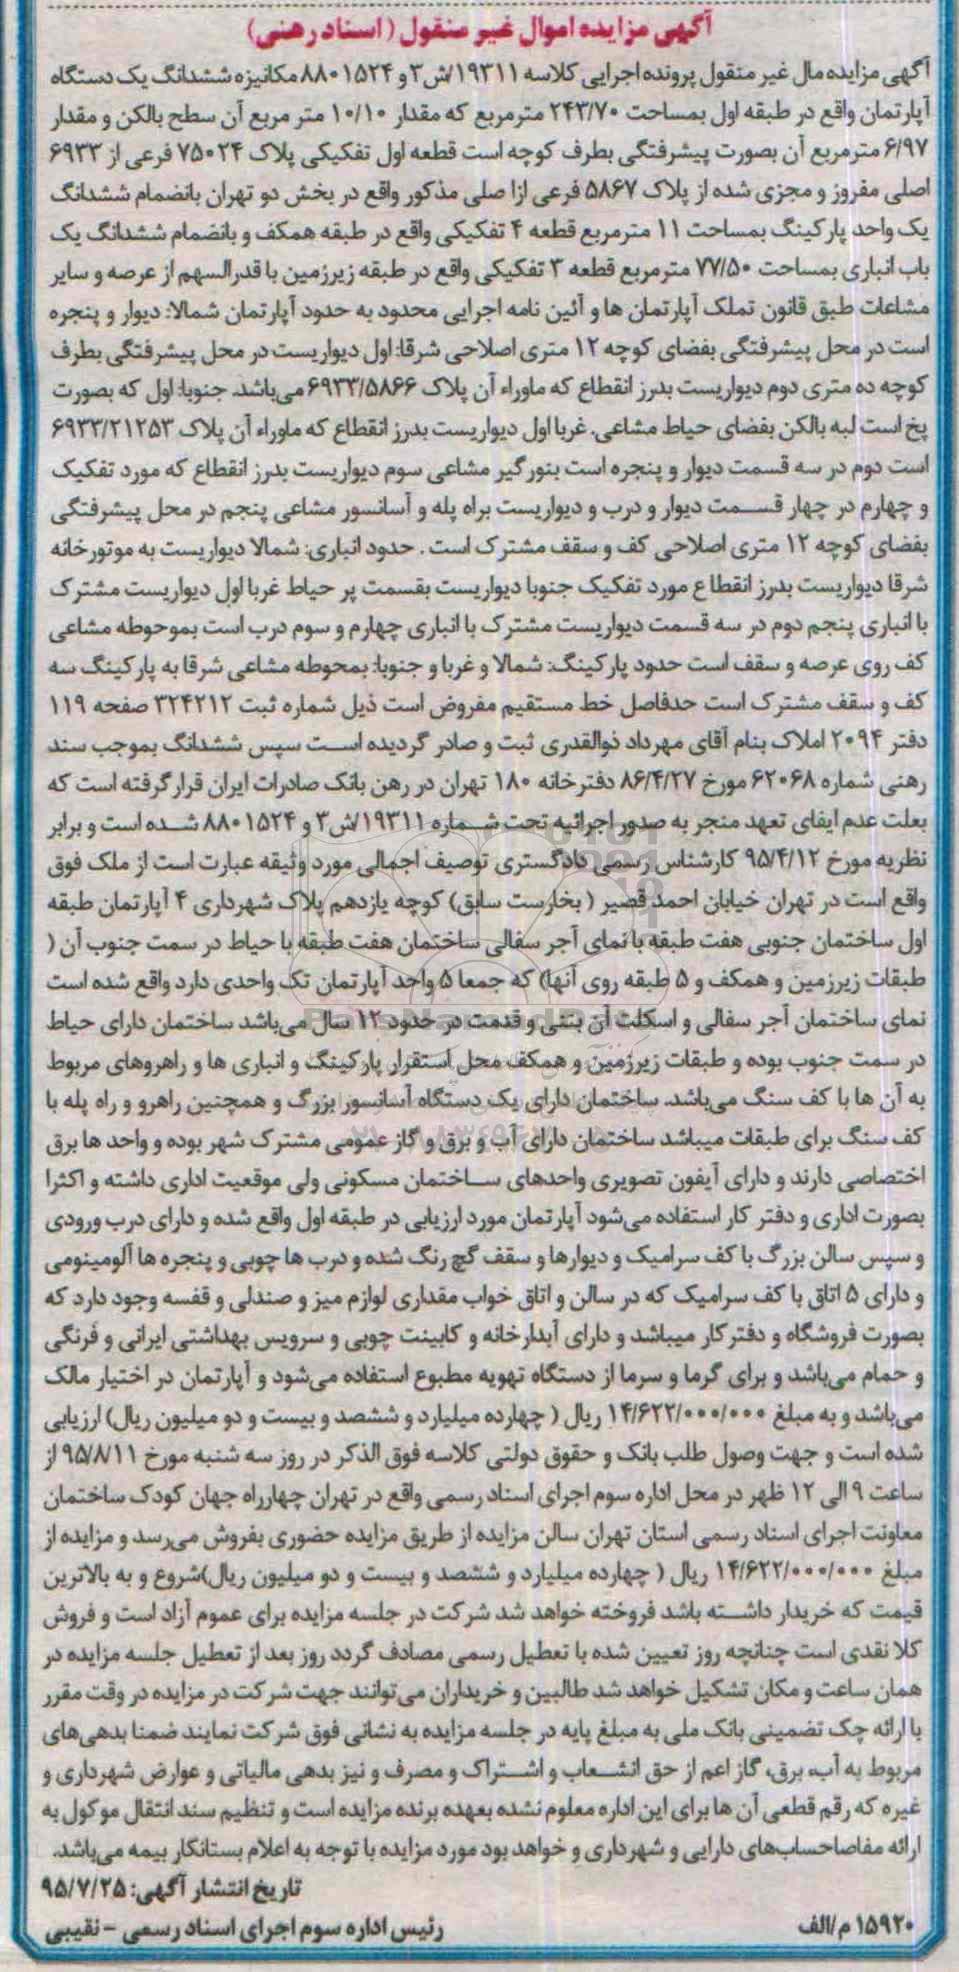 آگهی مزایده اموال غیر منقول (اسناد رهنی)
آگهی مزایده مال غیر منقول پرونده اجرایی کلاسه ۱۹۳۱۱/ش۳ و ۸۸۰۱۵۲۴ مکانیزه ششدانگ یک دستگاه
آپارتمان واقع در طبقه اول بمساحت ۲۴۳/۷۰ مترمربع که مقدار ۱۰/۱۰ متر مربع آن سطح بالکن و مقدار
۶/۹۷ مترمربع آن بصورت پیشرفتگی بطرف کوچه است قطعه اول تفکیکی پلاک ۷۵۰۲۴ فرعی از ۶۹۳۳
اصلی مفروز و مجزی شده از پلاک ۵۸۶۷ فرعی ازا صلی مذکور واقع در بخش دو تهران بانضمام ششدانگ
یک واحد پارکینگ بمساحت ۱۱ مترمربع قطعه ۴ تفکیکی واقع در طبقه همکف و بانضمام ششدانگ یک
باب انباری بمساحت ۷۷/۵۰ مترمربع قطعه ۳ تفکیکی واقع در طبقه زیرزمین با قدرالسهم از عرصه و سایر
مشاعات طبق قانون تملک آپارتمان ها و آئین نامه اجرایی محدود به حدود آپارتمان شمالا: دیوار و پنجره
است در محل پیشرفتگی بفضای کوچه ۱۲ متری اصلاحی شرقا: اول دیواریست در محل پیشرفتگی بطرف
کوچه ده متری دوم دیواریست بدرز انقطاع که ماوراء آن پلاک ۶۹۳۳/۵۸۶۶ می‌باشد. جنوبا: اول که بصورت
پخ است لبه بالکن بفضای حیاط مشاعی. غربا اول دیواریست بدرز انقطاع که ماوراء آن پلاک ۶۹۳۳/۲۱۲۵۳
است دوم در سه قسمت دیوار و پنجره است بنورگیر مشاعی سوم دیواریست بدرز انقطاع که مورد تفکیک
و چهارم در چهار قسمت دیوار و درب و دیواریست براه پله و آسانسور مشاعی پنجم در محل پیشرفتگی
بفضای کوچه ۱۲ متری اصلاحی کف و سقف مشترک است . حدود انباری: شمالا دیواریست به موتورخانه
شرقا دیواریست بدرز انقطاع مورد تفکیک جنوبا دیواریست بقسمت پر حیاط غربا اول دیواریست مشترک
با انباری پنجم دوم در سه قسمت دیواریست مشترک با انباری چهارم و سوم درب است بموحوطه مشاعی
کف روی عرصه و سقف است حدود پارکینگ: شمالا و غربا و جنوبا: بمحوطه مشاعی شرقا به پارکینگ سه
کف و سقف مشترک است حدفاصل خط مستقیم مفروض است ذیل شماره ثبت ۳۲۴۲۱۲ صفحه ۱۱۹
دفتر ۲۰۹۴ املاک بنام آقای مهرداد ذوالقدری ثبت و صادر گردیده است سپس ششدانگ بموجب سند
رهنی شماره ۶۲۰۶۸ مورخ ۸۶/۴/۲۷ دفترخانه ۱۸۰ تهران در رهن بانک صادرات ایران قرار گرفته است که
بعلت عدم ایفای تعهد منجر به صدور اجرائیه تحت شماره ۱۹۳۱۱/ش۳ و ۸۸۰۱۵۲۴ شده است و برابر
نظریه مورخ ۹۵/۴/۱۲ کارشناس رسمی دادگستری توصیف اجمالی مورد وثیقه عبارت است از ملک فوق
واقع است در تهران خیابان احمد قصیر ( بخارست سابق) کوچه یازدهم پلاک شهرداری ۴ آپارتمان طبقه
اول ساختمان جنوبی هفت طبقه با نمای آجر سفالی ساختمان هفت طبقه با حیاط در سمت جنوب آن (
طبقات زیرزمین و همکف و ۵ طبقه روی آنها) که جمعا ۵ واحد آپارتمان تک واحدی دارد واقع شده است
نمای ساختمان آجر سفالی و اسکلت آن بتنی و قدمت در حدود ۱۲ سال می‌باشد ساختمان دارای حیاط
در سمت جنوب بوده و طبقات زیرزمین و همکف محل استقرار پارکینگ و انباری ها و راهروهای مربوط
به آن ها با کف سنگ می‌باشد. ساختمان دارای یک دستگاه آسانسور بزرگ و همچنین راهرو و راه پله با
کف سنگ برای طبقات میباشد ساختمان دارای آب و برق و گاز عمومی مشترک شهر بوده و واحد ها برق
اختصاصی دارند و دارای آیفون تصویری واحدهای ساختمان مسکونی ولی موقعیت اداری داشته و اکثرا
بصورت اداری و دفتر کار استفاده می‌شود آپارتمان مورد ارزیابی در طبقه اول واقع شده و دارای درب ورودی
و سپس سالن بزرگ با کف سرامیک و دیوارها و سقف گچ رنگ شده و درب ها چوبی و پنجره ها آلومینومی
و دارای ۵ اتاق با کف سرامیک که در سالن و اتاق خواب مقداری لوازم میز و صندلی و قفسه وجود دارد که
بصورت فروشگاه و دفتر کار میباشد و دارای آبدارخانه و کابینت چوبی و سرویس بهداشتی ایرانی و فرنگی
و حمام می‌باشد و برای گرما و سرما از دستگاه تهویه مطبوع استفاده می‌شود و آپارتمان در اختیار مالک
می‌باشد و به مبلغ ۱۴/۶۲۲/۰۰۰/۰۰۰ ریال ( چهارده میلیارد و ششصد و بیست و دو میلیون ریال) ارزیابی
شده است و جهت وصول طلب بانک و حقوق دولتی کلاسه فوق الذکر در روز سه شنبه مورخ ۹۵/۸/۱۱ از
ساعت ۹ الی ۱۲ ظهر در محل اداره سوم اجرای اسناد رسمی واقع در تهران چهارراه جهان کودک ساختمان
معاونت اجرای اسناد رسمی استان تهران سالن مزایده از طریق مزایده حضوری بفروش می‌رسد و مزایده از
مبلغ ۱۴/۶۲۲/۰۰۰/۰۰۰ ریال ( چهارده میلیارد و ششصد و بیست و دو میلیون ریال)شروع و به بالاترین
قیمت که خریدار داشته باشد فروخته خواهد شد شرکت در جلسه مزایده برای عموم آزاد است و فروش
کلا نقدی است چنانچه روز تعیین شده با تعطیل رسمی مصادف گردد روز بعد از تعطیل جلسه مزایده در
همان ساعت و مکان تشکیل خواهد شد طالبین و خریداران می‌توانند جهت شرکت در مزایده در وقت مقرر
با ارائه چک تضمینی بانک ملی به مبلغ پایه در جلسه مزایده به نشانی فوق شرکت نمایند ضمنا بدهی‌های
مربوط به آب، برق، گاز اعم از حق انشعاب و اشتراک و مصرف و نیز بدهی مالیاتی و عوارض شهرداری و
غیره که رقم قطعی آن ها برای این اداره معلوم نشده بعهده برنده مزایده است و تنظیم سند انتقال موکول به
ارائه مفاصاحساب‌های دارایی و شهرداری و خواهد بود مورد مزایده با توجه به اعلام بستانکار بیمه می‌باشد.
تاریخ انتشار آگهی: ۹۵/۷/۲۵
۱۵۹۲۰ م/الف رئیس اداره سوم اجرای اسناد رسمی - نقیبی